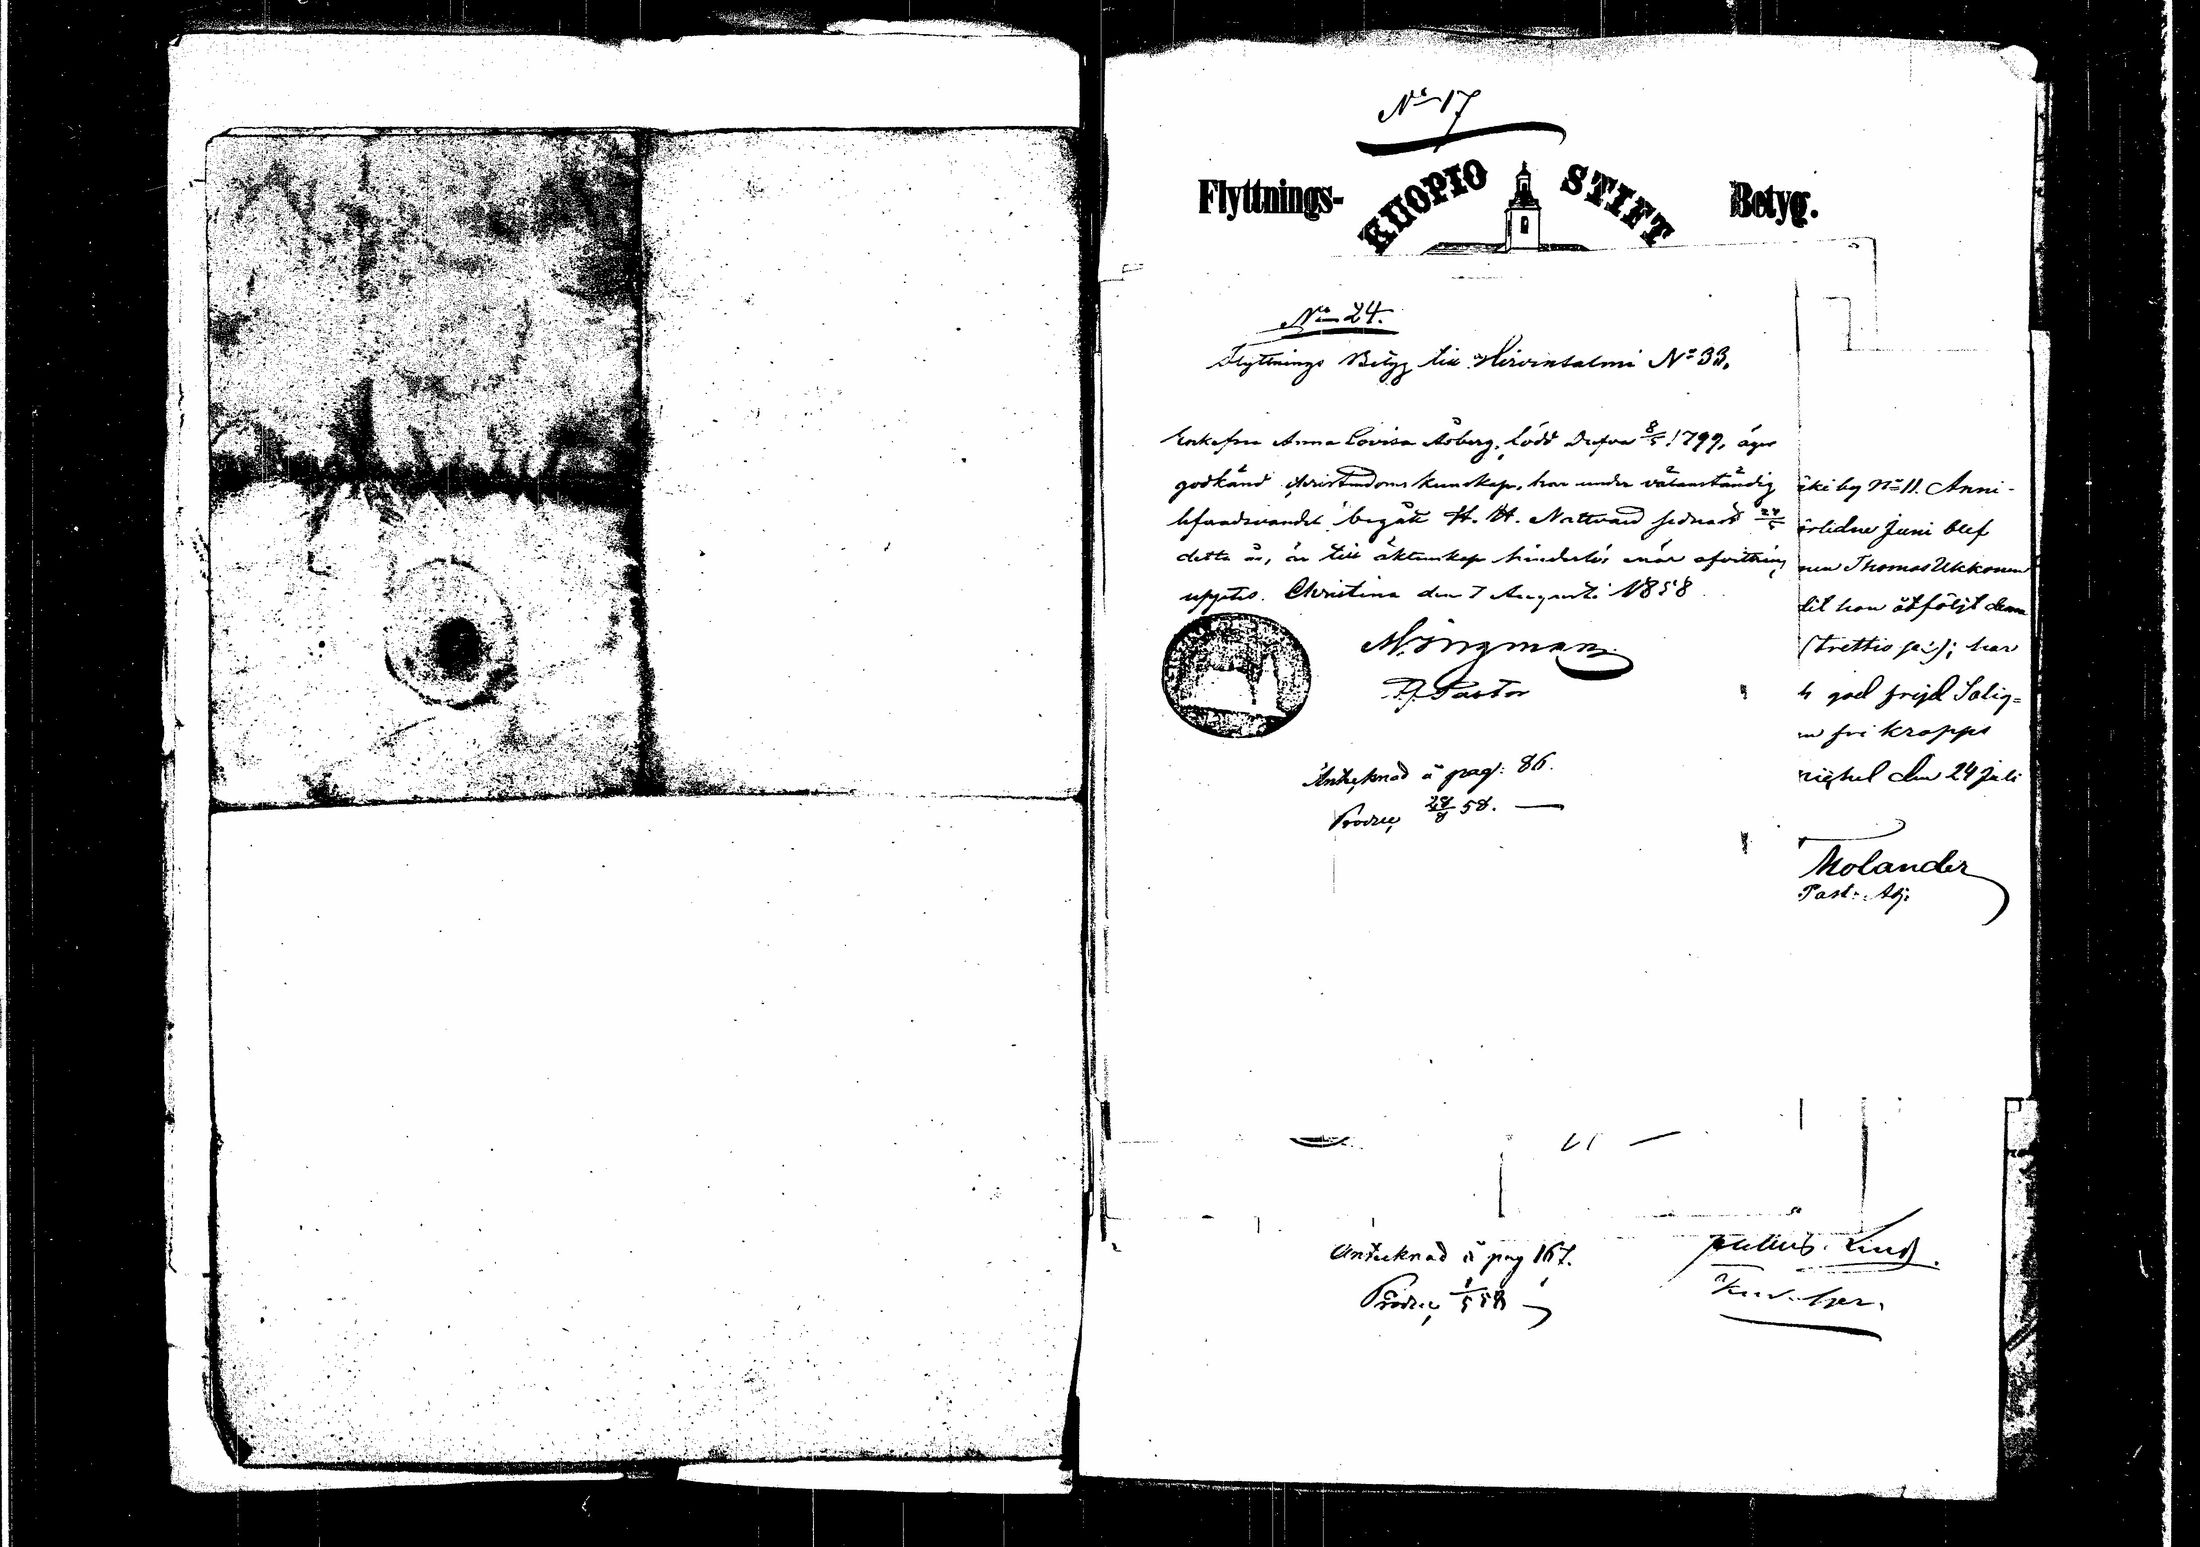 No 17
Flyttnings- KUOPIO STIFT Betyg.
No 24.
Flyttnings Betyg till Hirvensalmi No 33.
Enkefru Anna Lovisa Åberg, född Dufva 8/5 1799, äger
godkänd christendoms kunskap, har under välanständig
lefnadsvandel begått H. H. Nattvard sednast 27/5
detta år, är till äktenskap hinderlös när afvittring
uppvis. Christina den 7 Augusti 1858
Pastor
Antecknad å pag: 86.
28/8 58.
äki by No 11. Anni-
örlidne Juni blef
nen Thomas Ukkonen
tit hon åtföljt denn
(trettio sex); har
h god frejd Salig-
m fri kropps
michel den 24 Juli
Molander
Past. Adj.
Antecknad å pag 167.
1/5 58
Julius Lind